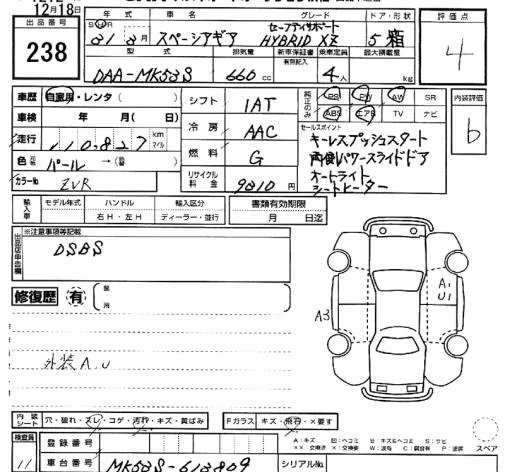 12月18日
出品番号
238
年式 車名 グレード ドア・形状
S H R
31 3月 スペーシアギア セーフティサポート
HYBRID XZ 5 箱
型式 排気量 新車保証書 乗車定員 最大積載量
有限記入
DAA-MK53S 660 cc 4人 kg
評価点
4
車歴 自家用・レンタ( )
車検 年 月( 日)
走行 110,827 km マイル
色 元色 パール →(替 )
カラーNo ZVR
シフト IAT
冷房 AAC
燃料 G
リサイクル料金 9810 円
純正のみ PS PW AW SR
ABS エアB TV ナビ
内装評価
b
セールスポイント
キーレスプッシュスタート
両側パワースライドドア
オートライト
シートヒーター
輸入車 モデル年式 ハンドル 輸入区分
右H・左H ディーラー・並行
書類有効期限
月 日迄
出品店申告欄
※注意事項等記載
DSBS
修復歴 有 箇所
外装A.U
A3
A1
U1
内装シート 穴・破れ・スレ・コゲ・汚れ・キズ・黄ばみ
Fガラス キズ・飛石・×要す
検査員
11
登録番号
車台番号 MK53S-613809
シリアルNo
A:キズ U:ヘコミ B:キズ&ヘコミ S:サビ
××:交換済 ×:要交換 W:波有 C:腐食有 P:塗装
スペア